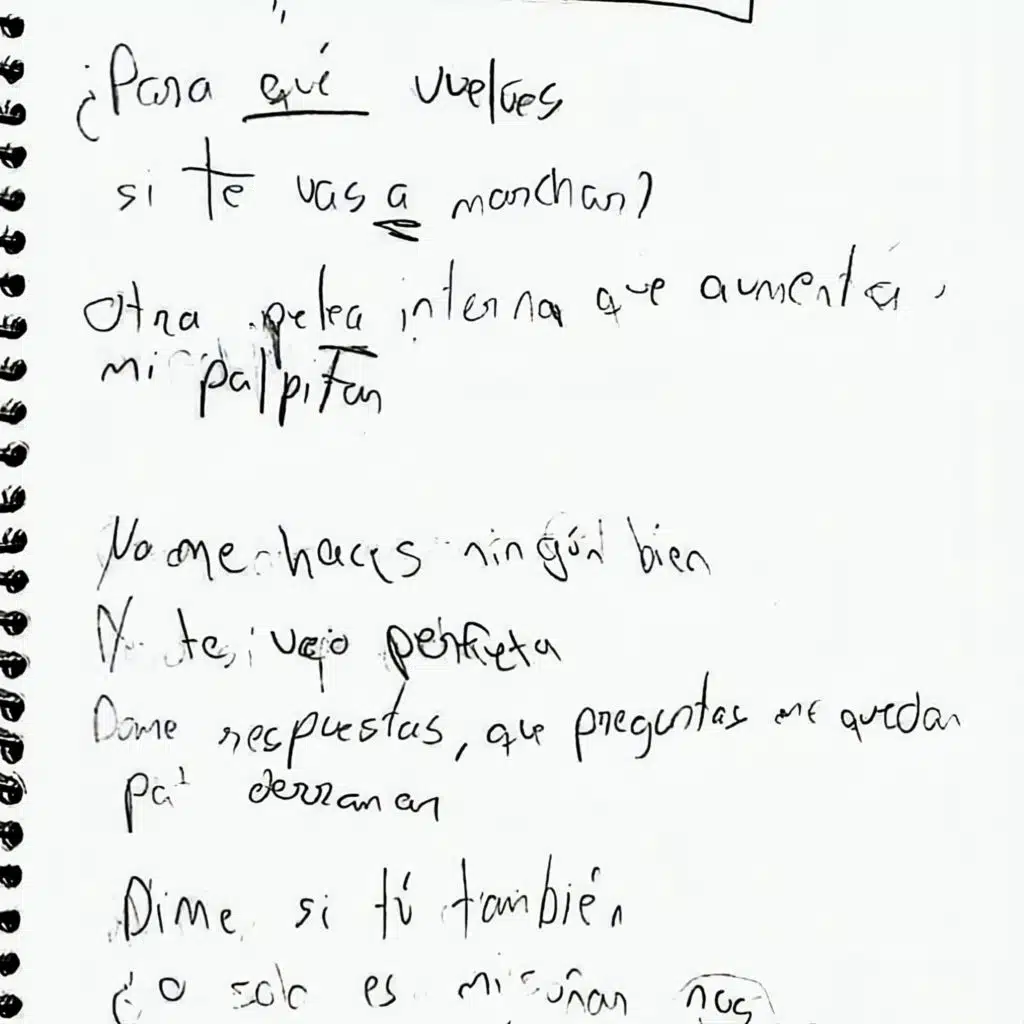 ¿Para qué vuelves
si te vas a marchar?
Otra pelea interna que aumenta
mi palpitar
No me haces ningún bien
Y te veo perfecta
Dame respuestas, que preguntas me quedan
pa' derramar
Dime si tú también
¿O solo es mi soñar nos